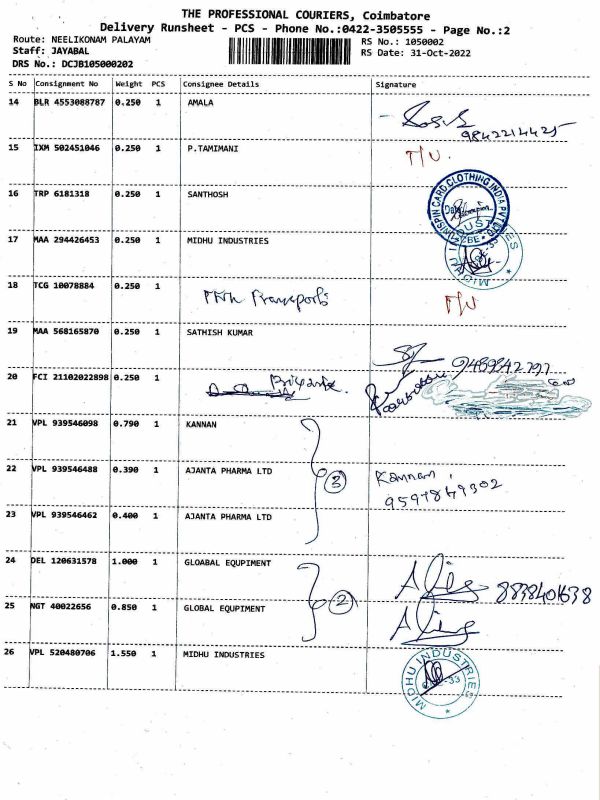 THE PROFESSIONAL COURIERS, Coimbatore
Delivery Runsheet - PCS - Phone No.:0422-3505555 - Page No.:2
Route: NEELIKONAM PALAYAM
RS No.: 1050002
Staff: JAYABAL
RS Date: 31-Oct-2022
DRS No.: DCJB105000202
S No Consignment No Weight PCS Consignee Details Signature
14 BLR 4553088787 0.250 1 AMALA
9842214425
15 IXM 502451046 0.250 1 P.TAMIMANI T/U.
16 TRP 6181318 0.250 1 SANTHOSH
WISPIN CARD CLOTHING INDIA PVT LTD
17 MAA 294426453 0.250 1 MIDHU INDUSTRIES
MIDHU INDUSTRIES
18 TCG 10078884 0.250 1 Transports T/U
19 MAA 568165870 0.250 1 SATHISH KUMAR
20 FCI 21102022898 0.250 1
21 VPL 939546098 0.790 1 KANNAN
22 VPL 939546488 0.390 1 AJANTA PHARMA LTD 3 Kannan
23 VPL 939546462 0.400 1 AJANTA PHARMA LTD
24 DEL 120631578 1.000 1 GLOABAL EQUPIMENT
25 NGT 40022656 0.850 1 GLOBAL EQUPIMENT 2
26 VPL 520480706 1.550 1 MIDHU INDUSTRIES
MIDHU INDUSTRIES